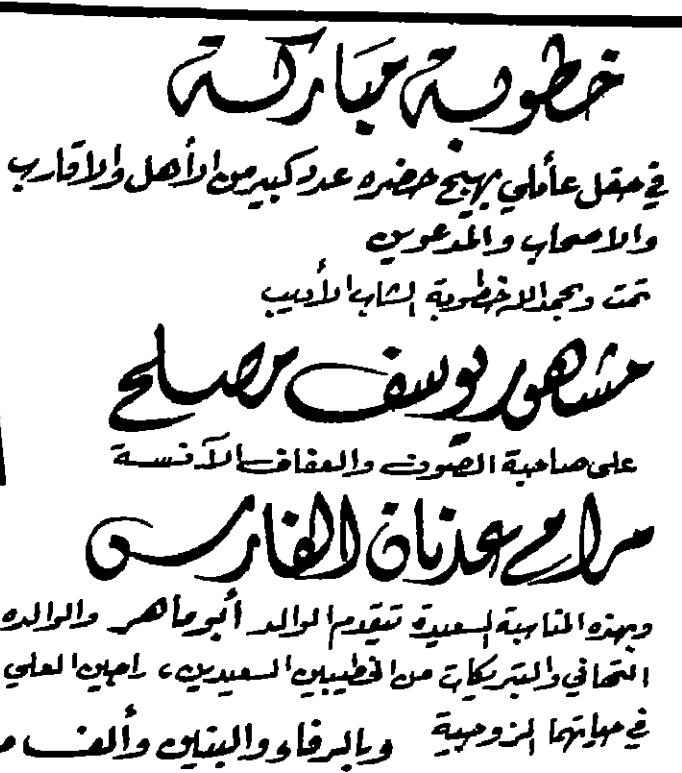 خطوبة مباركة
في حفل عائلي بهيج حضره عدد كبير من الأهل والاقارب
والاصحاب والمدعوين
تمت وبحمد الله خطوبة الشاب الأديب
مشهور يوسف مصلح
على صاحبة الصّون والعفاف الآنسة
مرام عدنان الفارس
وبهذه المناسبة السعيدة تتقدم الوالد أبو ماهر والوالده
التهاني والتبريكات من الخطيبين السعيدين، راجين العلي
في حياتهما الزوجية وبالرفاء والبنين وألف